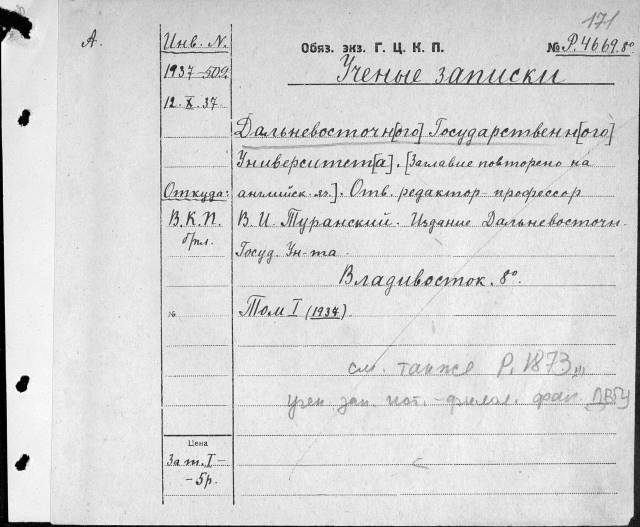 171
А.
Инв. N.
Обяз. экз. Г. Ц. К. П.
№ Р.4669.8º
1937-502
Ученые записки
12.X.37.
Дальневосточн[ого] Государственн[ого]
Университет[а]. [Заглавие повторено на
Откуда:
английск. яз.]. Отв. редактор профессор
В.К.П.
В. И. Туранский. Издание Дальневосточн.
Госуд. Ун-та.
Владивосток. 8º.
№
Том I (1937)
см. также Р.1873
учен. зап. ист.-филол. фак. ДВГУ
Цена
За т. I -
-5р.